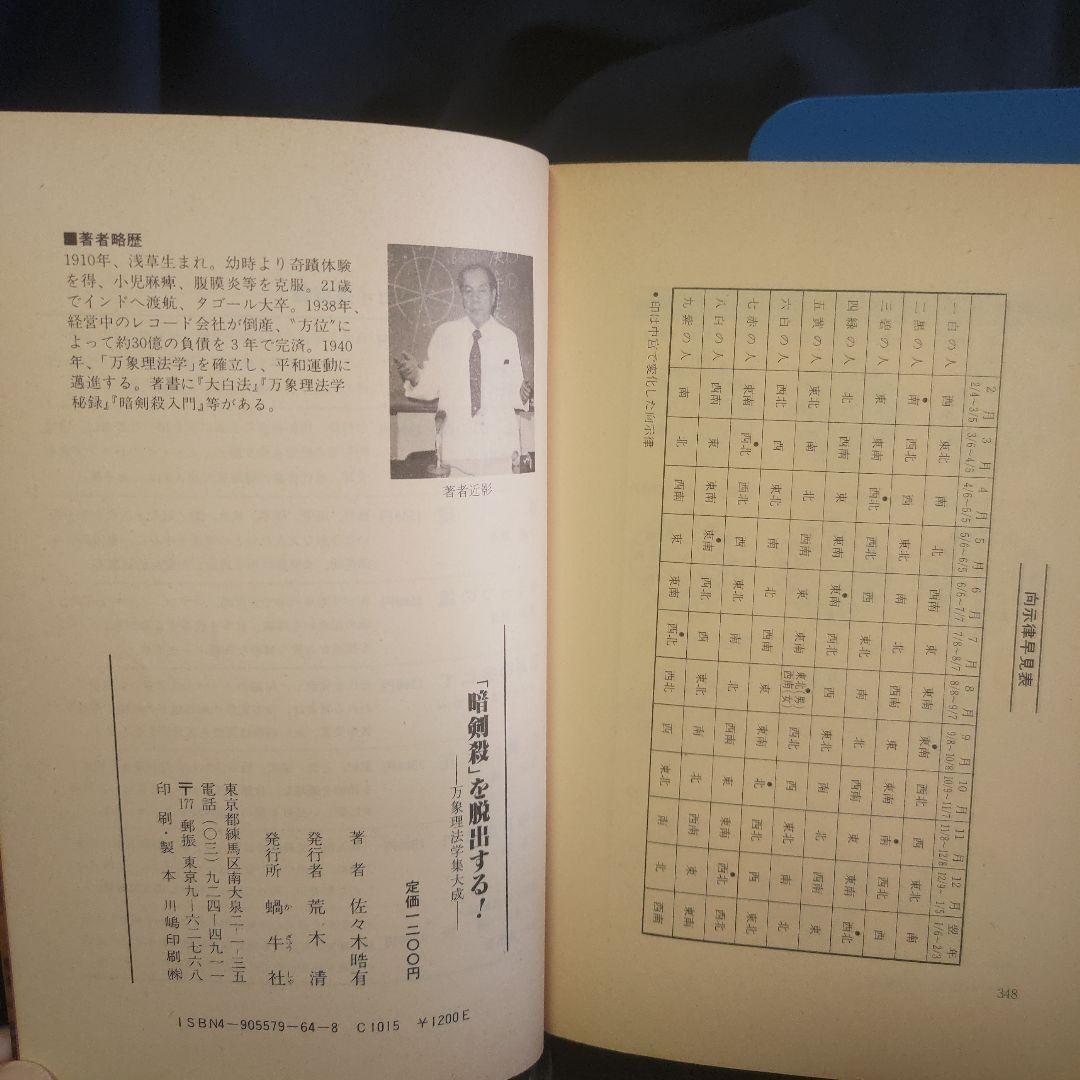 ■著者略歴
1910年、浅草生まれ。幼時より奇蹟体験
を得、小児麻痺、腹膜炎等を克服。21歳
でインドへ渡航、タゴール大卒。1938年、
経営中のレコード会社が倒産、〝方位〟に
よって約30億の負債を3年で完済。1940
年、「万象理法学」を確立し、平和運動に
邁進する。著書に『大白法』『万象理法学
秘録』『暗剣殺入門』等がある。
著者近影
「暗剣殺」を脱出する!
——万象理法学集大成——
定価一二〇〇円
著者 佐々木晧有
発行者 荒木清
発行所 蝸牛社
かぎゅうしゃ
東京都練馬区南大泉二-一-三五
電話(〇三)九二四-四九一一
〒177 郵振 東京九-六二七六八
印刷・製本 川嶋印刷㈱
ISBN4-905579-64-8 C1015 ¥1200E
向示律早見表
2月 3月 4月 5月 6月 7月 8月 9月 10月 11月 12月 翌年
2/4~3/5 3/6~4/5 4/6~5/5 5/6~6/5 6/6~7/7 7/8~8/7 8/8~9/7 9/8~10/8 10/9~11/7 11/8~12/8 12/9~1/5 1/6~2/3
一白の人 西 東北 南 北 西南 東 東南 •東南 西北 西 東北 南
二黒の人 •南 西北 西 東北 南 北 西南 東 東南 •南 西北 西
三碧の人 東 東南 •西北 西北 西 東北 南 北 西南 東 東南 •西北
四緑の人 北 西南 東 東南 •東南 西北 西 東北 南 北 西南 東
五黄の人 東北 南 北 西南 東 東南 •東北(男)西南(女) 西北 西 東北 南 北
六白の人 西北 西 東北 南 北 西南 東 東南 •北 西北 西 東北
七赤の人 東南 •西北 西北 西 東北 南 北 西南 東 東南 •西北
八白の人 西南 東 東南 •東南 西北 西 東北 南 北 西南 東 東南
九紫の人 南 北 西南 東 東南 •西北 西北 西 東北 南 北 西南
•印は中宮で変化した向示律
348